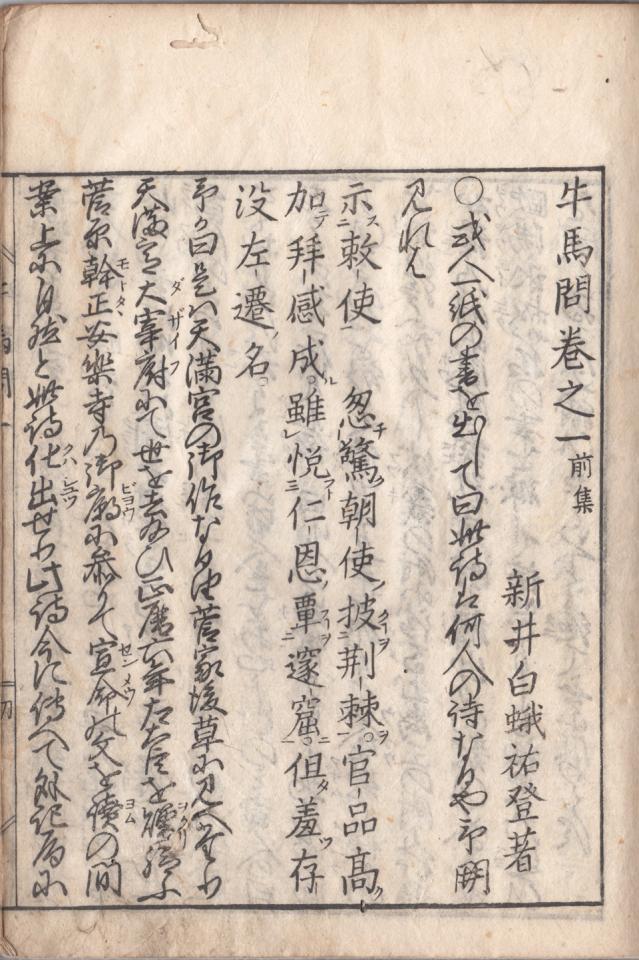 牛馬問卷之一前集
新井白蛾祐登著
○或人一紙の書を出して曰此詩は何人の詩なるや予開
見れは
示敕使　忽驚朝使披荆棘官品髙
加拜感成雖悦仁恩覃邃窟但羞存
没左遷名
予曰是は天満宮の御作なるよし菅家後草に見へたり
天満宮大宰府にて世を去給ひ正暦六年左大臣を贈給ふ
菅原幹正安樂寺の御廟に參りて宣命の文を讀の間
案上に自然と此詩化出せり此詩今に傳へて